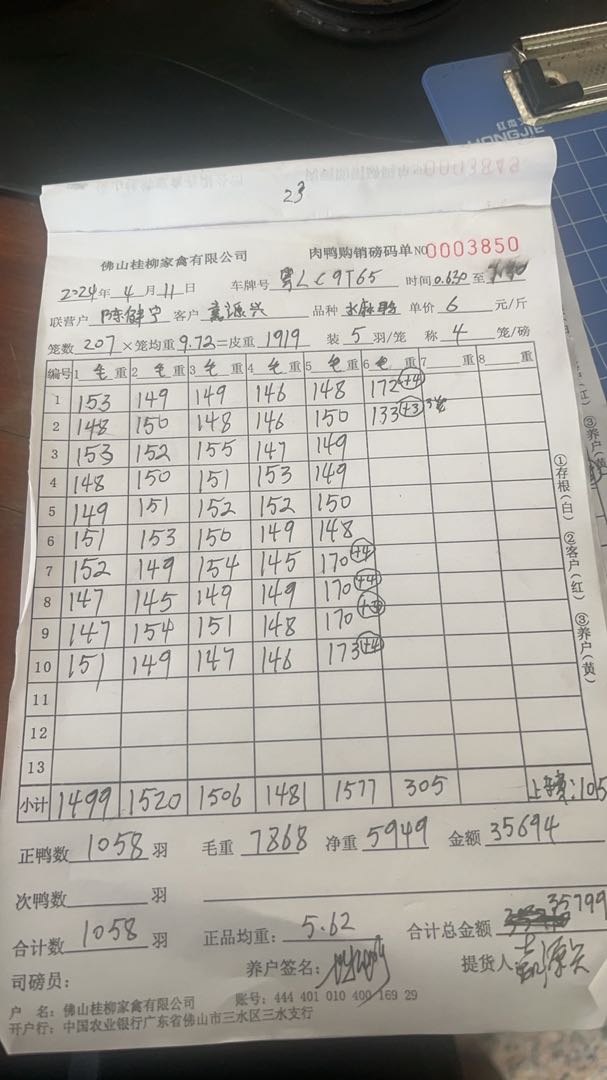 红杰
HONGJIE
0003849
23
佛山桂柳家禽有限公司 肉鸭购销磅码单 NO 0003850
2024年 4月 11日 车牌号 粤LC9T65 时间 0.630 至
联营户 陈健宁 客户 袁源兴 品种 水麻鸭 单价 6 元/斤
笼数 207 ×笼均重 9.72 =皮重 1919 装 5 羽/笼 称 4 笼/磅
编号 1 毛 重 2 毛 重 3 毛 重 4 毛 重 5 毛 重 6 毛 重 7 重 8 重
1 153 149 149 146 148 172 +4
2 148 150 148 146 150 133 +3 3笼
3 153 152 155 147 149
4 148 150 151 153 149
5 149 151 152 152 150
6 151 153 150 149 148
7 152 149 154 145 170 +4
8 147 145 149 149 170 +4
9 147 154 151 148 170 +3
10 151 149 147 146 173 +4
11
12
13
小计 1499 1520 1506 1481 1577 305 上车费:105
正鸭数 1058 羽 毛重 7868 净重 5949 金额 35694
次鸭数 羽
合计数 1058 羽 正品均重: 5.62 合计总金额 35799
司磅员: 养户签名: 提货人 袁源兴
户 名: 佛山桂柳家禽有限公司 账号: 444 401 010 400 169 29
开户行: 中国农业银行广东省佛山市三水区三水支行
①存根(白) ②客户(红) ③养户(黄)
③养户(黄